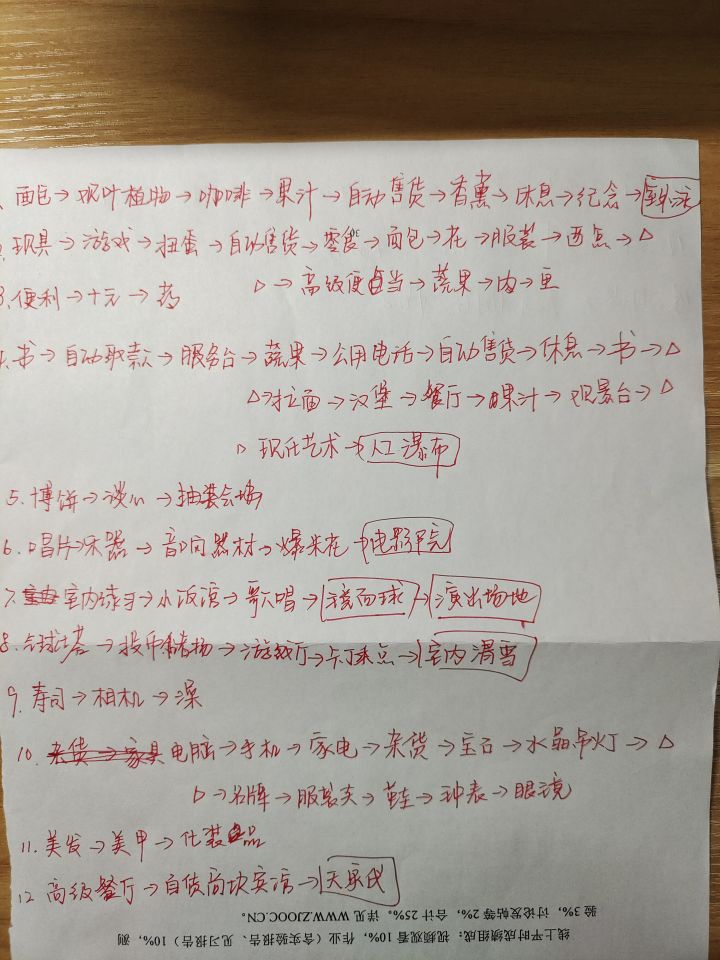 面包→观叶植物→咖啡→果汁→自动售货→香薰→休息→纪念→
玩具→游戏→扭蛋→自动售货→零食→面包→花→服装→西点→△
△→高级便当→蔬果→肉→鱼
3.便利→十元→药
4.书→自动取款→服务台→蔬果→公用电话→自动售货→休息→书→△
△→拉面→汉堡→餐厅→果汁→观景台→△
△现代艺术→人工瀑布
5.博饼→谈心→抽奖会场
6.唱片→乐器→音响器材→爆米花→电影院
7.室内绿子→小饭馆→歌唱→镜面球→演出场地
8.气球塔→投币储物→游戏厅→→室内滑雪
9.寿司→相机→澡
10.杂货→家具 电脑→手机→家电→杂货→宝石→水晶吊灯→△
△→名牌→服装→鞋→钟表→眼镜
11.美发→美甲→化装品
12 高级餐厅→自赏
线上平时成绩组成：视频观看 10%，作业（含实验报告、见习报告）10%，测
验 3%，讨论发帖等 2%，合计 25%。详见 WWW.ZJOOC.CN。